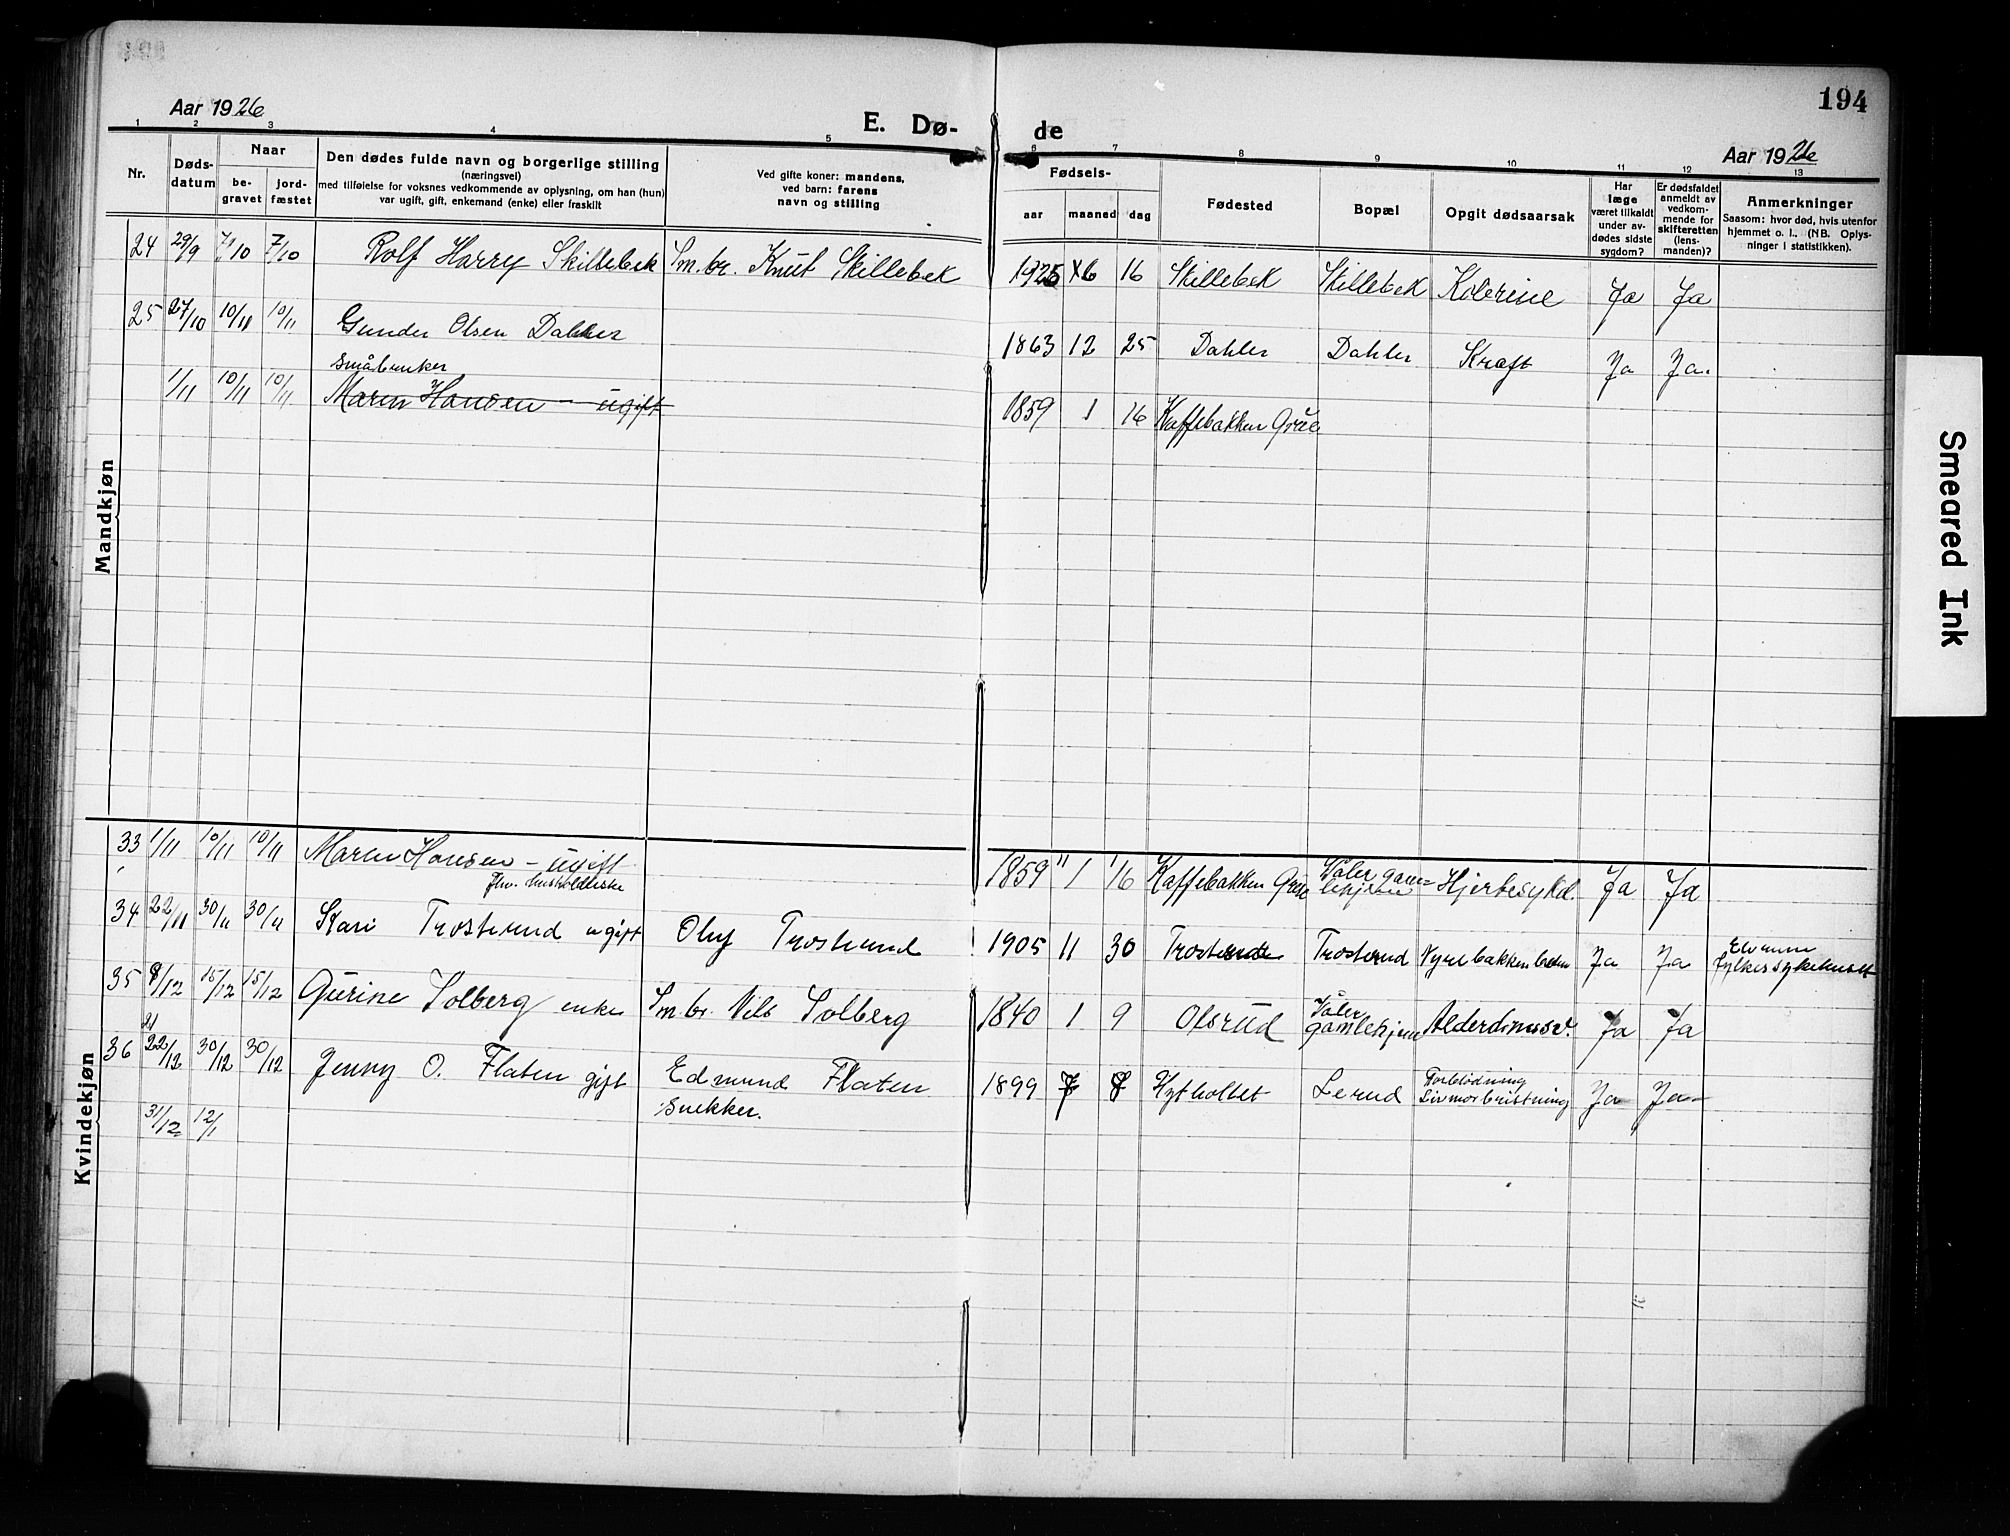 194
Aar 1926
E. Dø-
de
Aar 1926
1 2 3 4 5 6 7 8 9 10 11 12 13
Nr.
Døds-
datum
Naar
be-
gravet
jord-
fæstet
Den dødes fulde navn og borgerlige stilling
(næringsvei)
med tilføielse for voksnes vedkommende av oplysning, om han (hun)
var ugift, gift, enkemand (enke) eller fraskilt
Ved gifte koner: mandens,
ved barn: farens
navn og stilling
Fødsels-
aar maaned dag
Fødested
Bopæl
Opgit dødsaarsak
Har
læge
været tilkaldt
under av-
dødes sidste
sygdom?
Er dødsfaldet
anmeldt av
vedkom-
mende for
skifteretten
(lens-
manden)?
Anmerkninger
Saasom: hvor død, hvis utenfor
hjemmet o. l., (NB. Oplys-
ninger i statistikken).
Mandkjøn
24 29/9 7/10 7/10 Rolf Harry Skillebek Sm.br. Knut Skillebek 1925 6 16 Skillebek Skillebek Kolerine Ja Ja
25 27/10 10/11 10/11 Gunder Olsen Dahler 1863 12 25 Dahler Dahler Kræft Ja Ja.
Småbruker
1/11 10/11 10/11 Maren Hansen - ugift 1859 1 16 Kaffebakken
Kvindekjøn
33 1/11 10/11 10/11 Maren Hansen - ugift 1859 1 16 Kaffebakken Våler gam-
lehjem Hjertesykd. Ja Ja
fhv. husholderske
34 22/11 30/11 30/11 Kari Trosterud ugift Oluf Trosterud 1905 11 30 Trosterud Trosterud Nyrebekkenbetæn Ja Ja Elverum
fylkessykehuset
35 8/12 15/12 15/12 Gurine Solberg enke Sm.br. Nils Solberg 1840 1 9 Olsrud Våler
gamlehjem Alderdomssv. Ja Ja
21
36 22/12 30/12 30/12 Jenny O. Flaten gift Edmund Flaten 1899 7 8 Lerud Forblødning
Livmorbristning Ja Ja
Snekker.
31/12 12/1
Smeared Ink